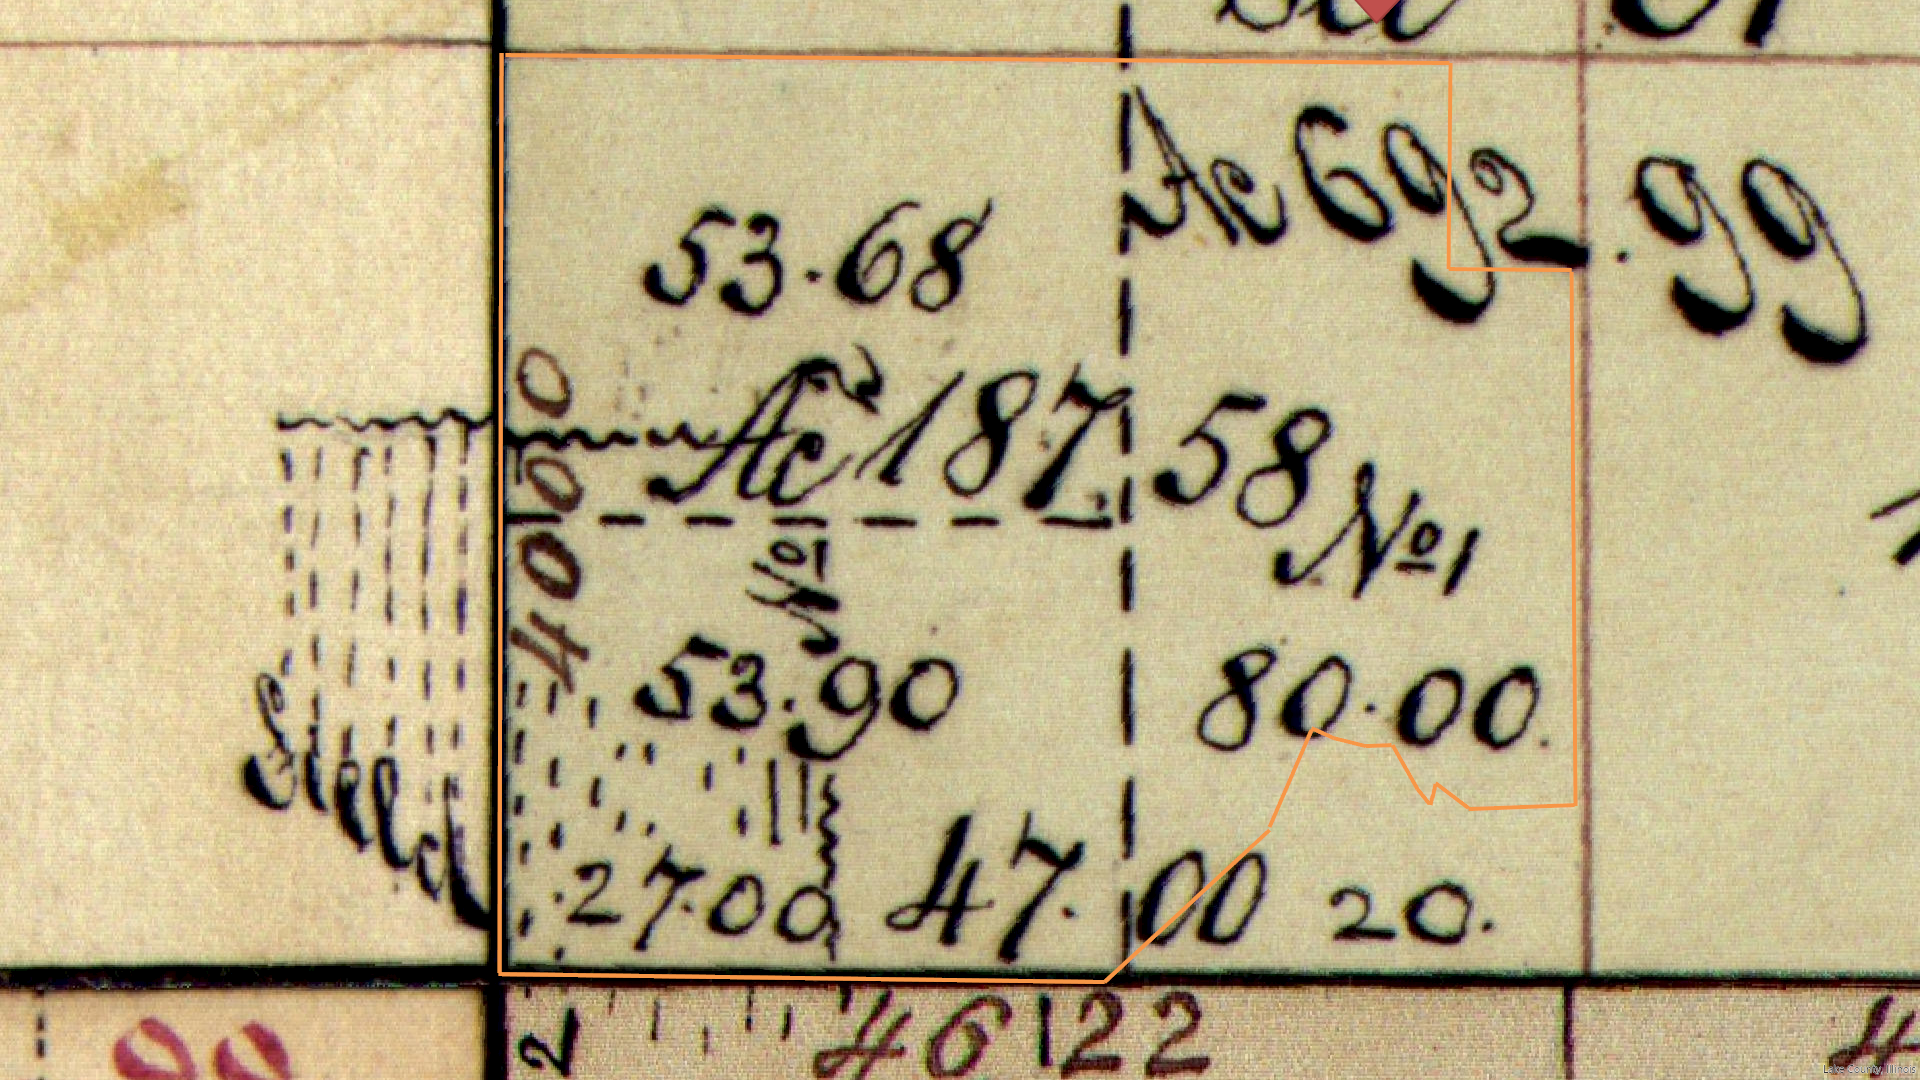 Sec 31
Ac 692.99
53.68
Ac 187.58
4000
No1
No1
53.90
80.00
Field
27.00
47.00
20.
2
46
22
4
Lake County, Illinois